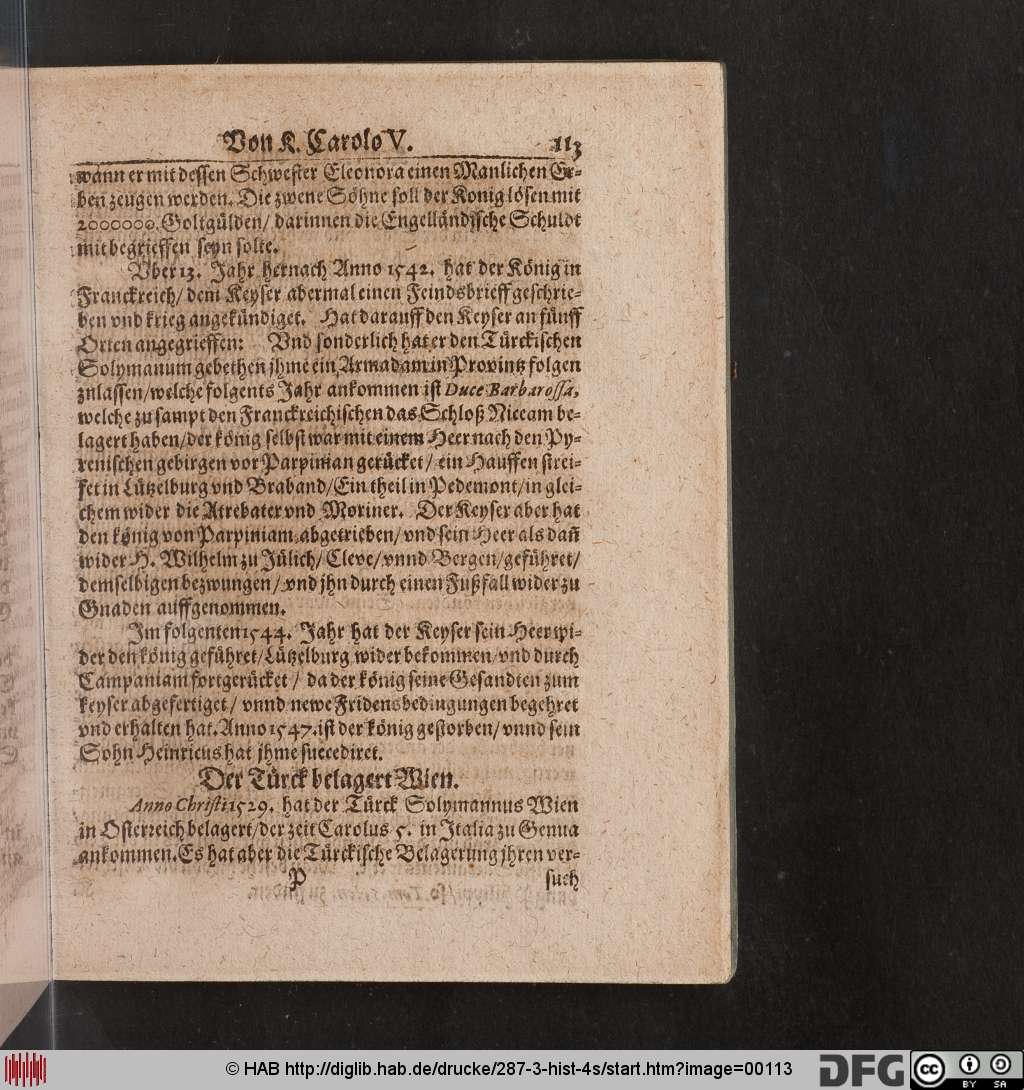 Von K. Carolo V. 113
wann er mit dessen Schwester Eleonora einen Manlichen Er-
ben zeugen werden. Die zwene Söhne soll der Konig lösen mit
2000000. Goltgülden/ darinnen die Engelländische Schuldt
mit begrieffen seyn solte.
Vber 13. Jahr hernach Anno 1542. hat der König in
Franckreich/ dem Keyser abermal einen Feindsbrieff geschrie-
ben vnd krieg angekündiget. Hat darauff den Keyser an fünff
Orten angegrieffen: Vnd sonderlich hat er den Türckischen
Solymanum gebethen jhme ein Armadam in Provintz folgen
zulassen/welche folgents Jahr ankommen ist Duce Barbarossa,
welche zu sampt den Franckreichischen das Schloß Niceam be-
lagert haben/der könig selbst war mit einem Heer nach den Py-
renischen gebirgen vor Parpinian gerücket/ ein Hauffen strei-
fet in Lützelburg vnd Braband/Ein theil in Pedemont/in glei-
chem wider die Atrebater vnd Moriner. Der Keyser aber hat
den könig von Parpiniam abgetrieben/vnd sein Heer als dañ
wider H. Wilhelm zu Jülich/Cleve/vnnd Bergen/geführet/
demselbigen bezwungen/vnd jhn durch einen Fußfall wider zu
Gnaden auffgenommen.
Im folgenten 1544. Jahr hat der Keyser sein Heer wi-
der den könig geführet/Lützelburg wider bekommen/vnd durch
Campaniam fortgerücket/ da der könig seine Gesandten zum
keyser abgefertiget/ vnnd newe Fridensbedingungen begehret
vnd erhalten hat. Anno 1547. ist der könig gestorben/vnnd sein
Sohn Heinricus hat jhme succediret.
Der Türck belagert Wien.
Anno Christi 1529. hat der Türck Solymannus Wien
in Osterreich belagert/der zeit Carolus 5. in Italia zu Genua
ankommen. Es hat aber die Türckische Belagerung jhren ver-
P such
© HAB http://diglib.hab.de/drucke/287-3-hist-4s/start.htm?image=00113
DFG
cc BY SA